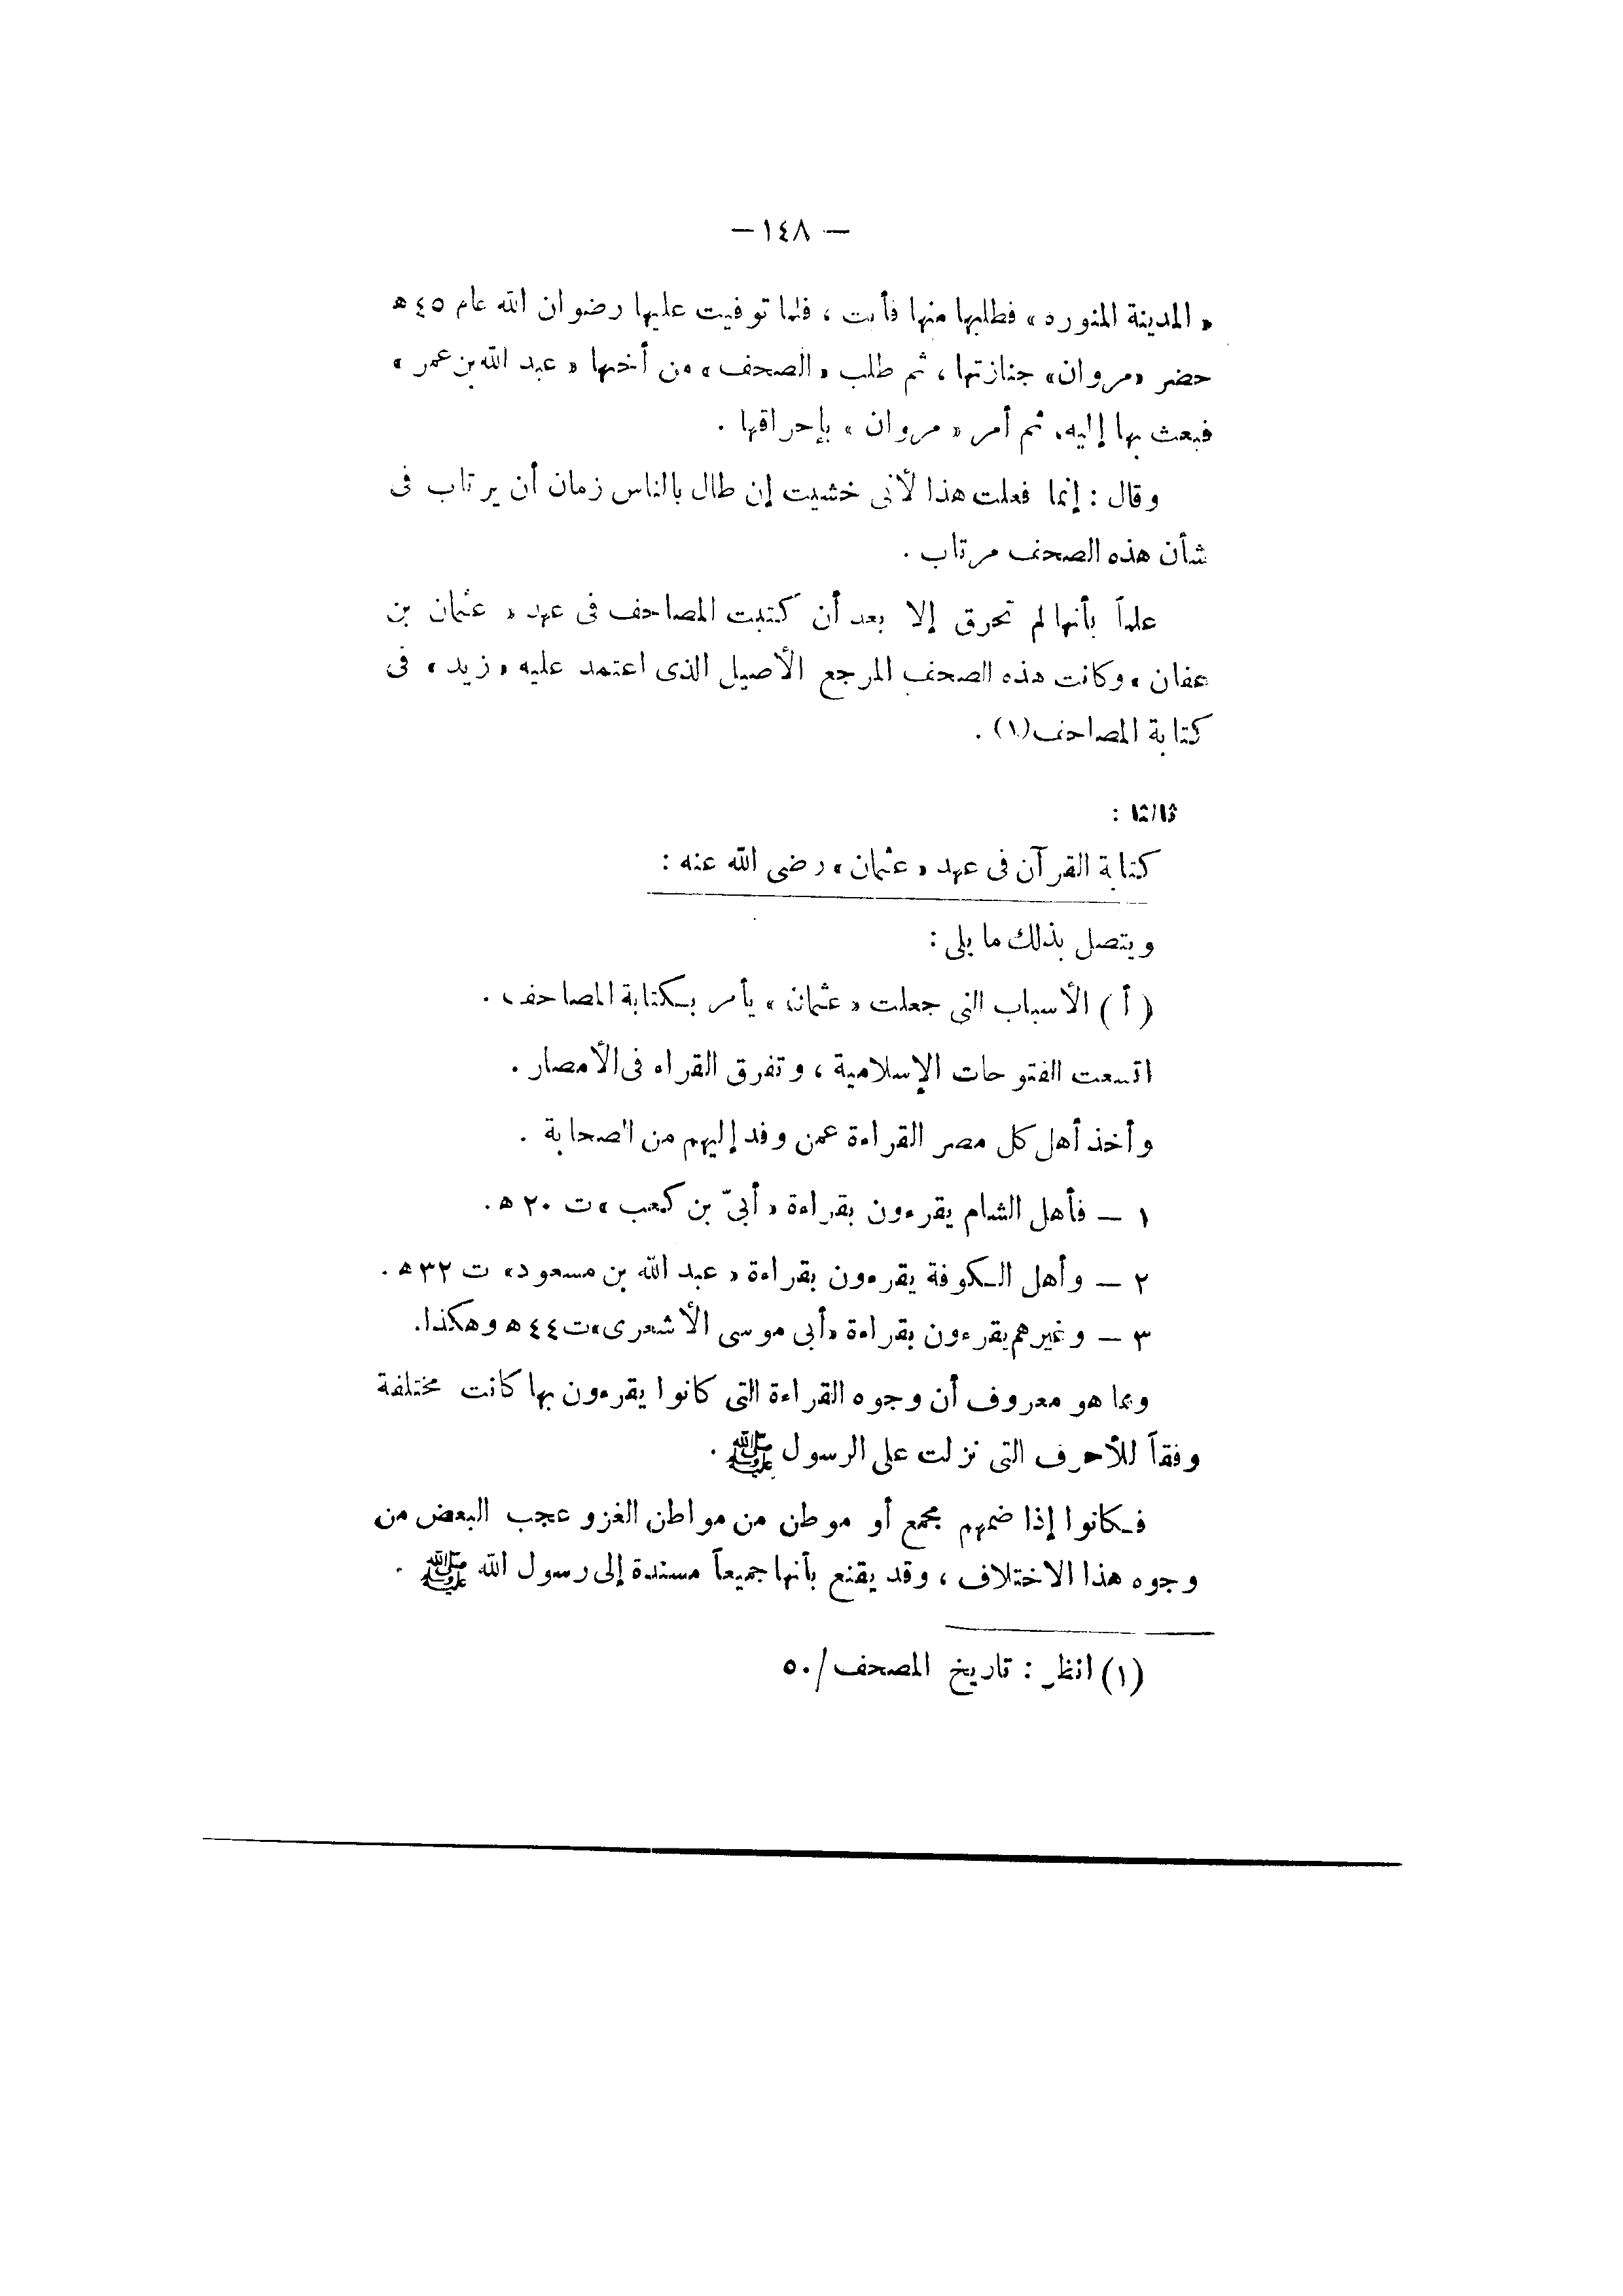 — ١٤٨ —
« المدينة المنوره » فطلبها منها فأبت ، فلما توفيت عليها رضوان الله عام ٤٥ ه
حضر «مروان» جنازتها ، ثم طلب « الصحف » من أخيها « عبد الله بن عمر »
فبعث بها إليه، ثم أمر « مروان » بإحراقها .
وقال : إنما فعلت هذا لأنى خشيت إن طال بالناس زمان أن يرتاب فى
شأن هذه الصحف مرتاب .
علماً بأنها لم تحرق إلا بعد أن كتبت المصاحف فى عهد « عثمان بن
عفان » وكانت هذه الصحف المرجع الأصيل الذى اعتمد عليه « زيد » فى
كتابة المصاحف(١) .
ثالثا :
كتابة القرآن فى عهد « عثمان » رضى الله عنه :
ويتصل بذلك ما يلى :
( أ ) الأسباب التى جعلت « عثمان » يأمر بكتابة المصاحف .
اتسعت الفتوحات الإسلامية ، وتفرق القراء فى الأمصار .
وأخذ أهل كل مصر القراءة عمن وفد إليهم من الصحابة .
١ — فأهل الشام يقرءون بقراءة « أبىّ بن كعب » ت ٢٠ ه.
٢ — وأهل الكوفة يقرءون بقراءة « عبد الله بن مسعود» ت ٣٢ ه .
٣ — وغيرهم يقرءون بقراءة «أبى موسى الأشعرى» ت ٤٤ ه وهكذا.
ومما هو معروف أن وجوه القراءة التى كانوا يقرءون بها كانت مختلفة
وفقاً للأحرف التى نزلت على الرسول ﷺ .
فكانوا إذا ضمهم مجمع أو موطن من مواطن الغزو عجب البعض من
وجوه هذا الاختلاف ، وقد يقنع بأنها جميعاً مسندة إلى رسول الله ﷺ .
(١) انظر : تاريخ المصحف /٥٠